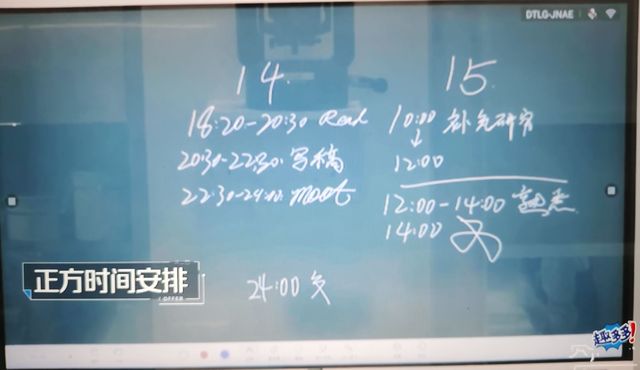 DTLG-JNAE
14.
18:20-20:30 Read
20:30-22:30: 写稿
22:30-24:00: moot
24:00
15
10:00 补充研究
↓
12:00
12:00-14:00 熟悉
14:00
正方时间安排
OFFER
趣多多!